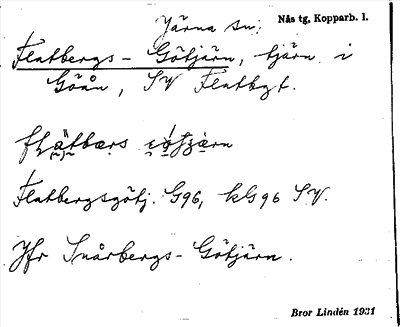 Järna sn: Nås tg, Kopparb. l.
Flatbergs - Götjärn, tjärn i
Göån, SV Flatbgt.
Flatbergsgötj. G96, kG96 SV.
Jfr Snårbergs - Götjärn.
Bror Lindén 1931